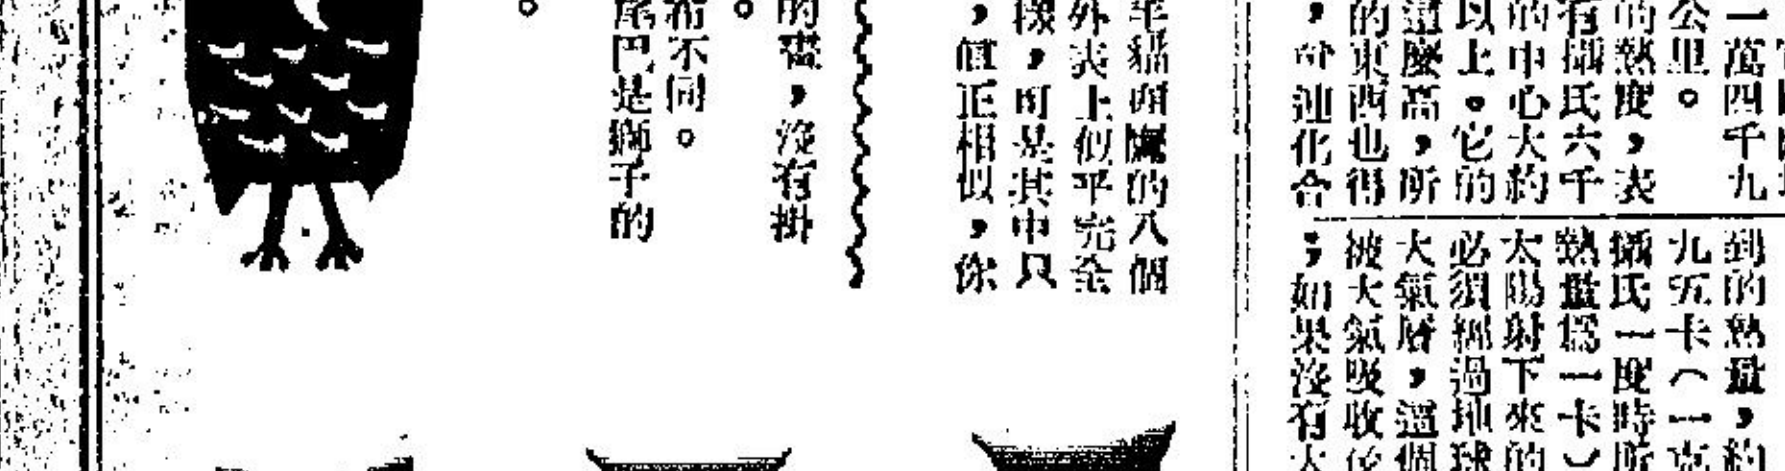 一萬四千九
公里。
的熱度,表
有攝氏六千
的中心大約
以上。它的
這麼高,所
的東西也得
化合
到的熱量,約
九五卡(一克
攝氏一度時所
熱量爲一卡)
太陽射下來的
必須經過地球
大氣層,這個
被大氣吸收後
;如果沒有大
貓頭鷹的八個
外表上似乎完全
樣,可是其中只
,個正相似,你
,沒有掛
。
布不同。
尾巴是獅子的
。